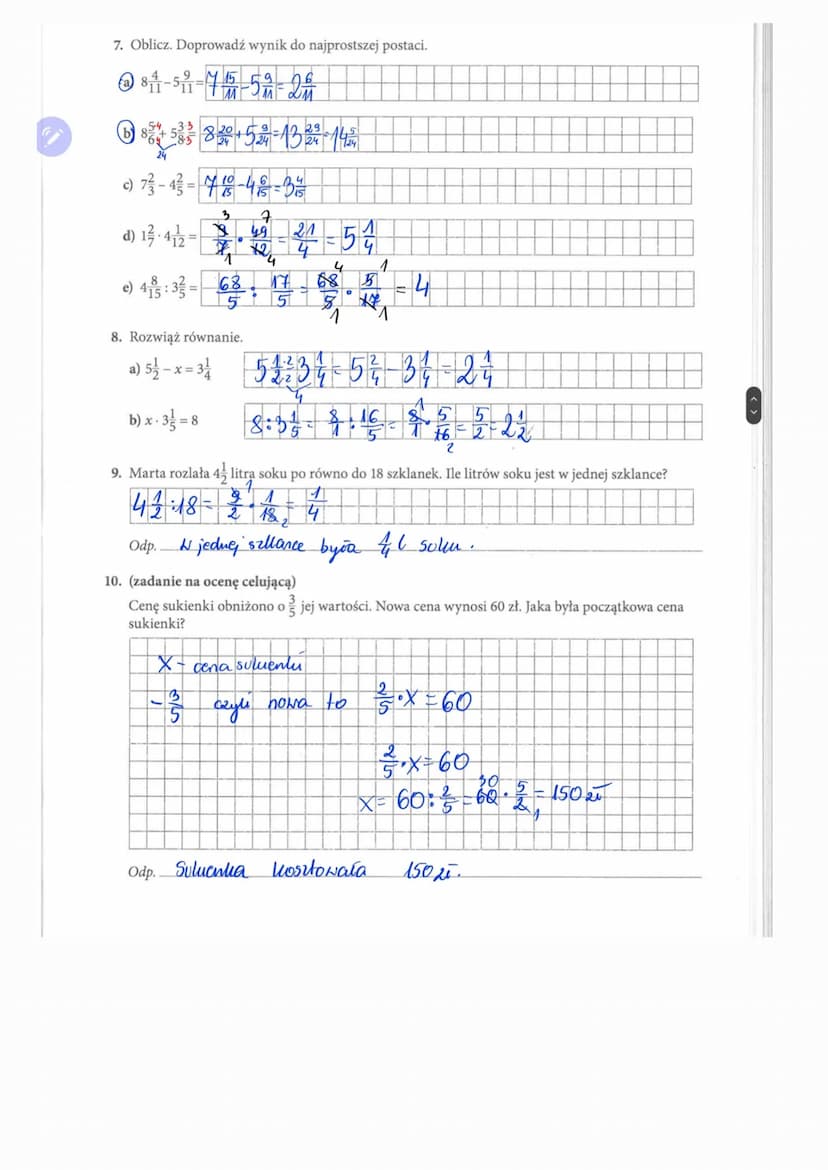 7. Oblicz. Doprowadź wynik do najprostszej postaci.
a) 8 4/11 – 5 9/11 = 7 15/11 – 5 9/11 = 2 6/11
b) 8 5·4/6·4 + 5 3·3/8·3 = 8 20/24 + 5 9/24 = 13 29/24 = 14 5/24
24
c) 7 2/3 – 4 2/5 = 7 10/15 – 4 6/15 = 3 4/15
3 7
d) 1 2/7 · 4 1/12 = 9/7 · 49/12 = 21/4 = 5 1/4
1 4
4 1
e) 4 8/15 : 3 2/5 = 68/5 : 17/5 = 68/5 · 5/17 = 4
1 1
8. Rozwiąż równanie.
a) 5 1/2 – x = 3 1/4 5 1·2/2·2 – 3 1/4 = 5 2/4 – 3 1/4 = 2 1/4
4
1
b) x · 3 1/5 = 8 8 : 3 1/5 = 8/1 : 16/5 = 8/1 · 5/16 = 5/2 = 2 1/2
2
9. Marta rozlała 4 1/2 litra soku po równo do 18 szklanek. Ile litrów soku jest w jednej szklance?
4 1/2 : 18 = 9/2 · 1/18 = 1/4
1 2
Odp. W jednej szklance była 1/4 l soku.
10. (zadanie na ocenę celującą)
Cenę sukienki obniżono o 3/5 jej wartości. Nowa cena wynosi 60 zł. Jaka była początkowa cena
sukienki?
X – cena sukienki
– 3/5 czyli nowa to 2/5 · X = 60
2/5 · X = 60
30
X = 60 : 2/5 = 60 · 5/2 = 150 zł
1
Odp. Sukienka kosztowała 150 zł.